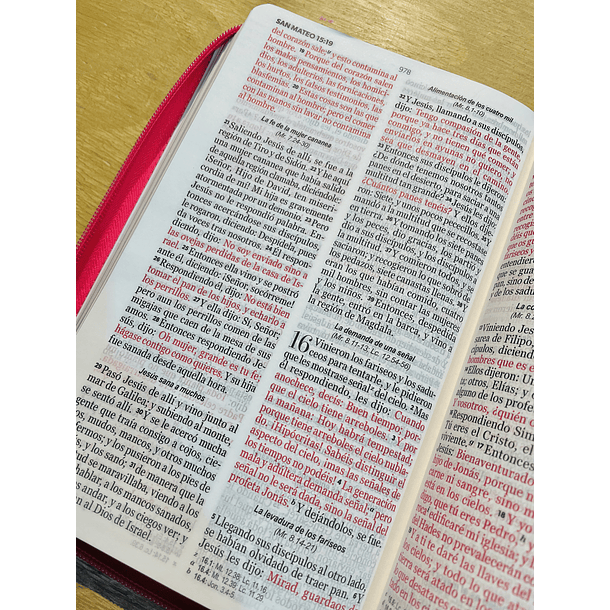 SAN MATEO 15:19
978
del corazón sale; y esto contamina al
hombre. 19 Porque del corazón salen
los malos pensamientos, los homici-
dios, los adulterios, las fornicaciones,
los hurtos, los falsos testimonios, las
blasfemias. 20 Estas cosas son las que
contaminan al hombre; pero el comer
con las manos sin lavar no contamina
al hombre.
La fe de la mujer cananea
(Mr. 7.24-30)
21 Saliendo Jesús de allí, se fue a la
región de Tiro y de Sidón. 22 Y he aquí
una mujer cananea que había salido
de aquella región clamaba, diciéndole:
¡Señor, Hijo de David, ten miseri-
cordia de mí! Mi hija es gravemente
atormentada por un demonio. 23 Pero
Jesús no le respondió palabra. En-
tonces acercándose sus discípulos,
le rogaron, diciendo: Despídela, pues
da voces tras nosotros. 24 Él respon-
diendo, dijo: No soy enviado sino a
las ovejas perdidas de la casa de Is-
rael. 25 Entonces ella vino y se postró
ante él, diciendo: ¡Señor, socórreme!
26 Respondiendo él, dijo: No está bien
tomar el pan de los hijos, y echarlo a
los perrillos. 27 Y ella dijo: Sí, Señor;
pero aun los perrillos comen de las
migajas que caen de la mesa de sus
amos. 28 Entonces respondiendo Je-
sús, dijo: Oh mujer, grande es tu fe;
hágase contigo como quieres. Y su hija
fue sanada desde aquella hora.
Jesús sana a muchos
29 Pasó Jesús de allí y vino junto al
mar de Galilea; y subiendo al monte,
se sentó allí. 30 Y se le acercó mucha
gente que traía consigo a cojos, cie-
gos, mudos, mancos, y otros muchos
enfermos; y los pusieron a los pies de
Jesús, y los sanó; 31 de manera que la
multitud se maravillaba, viendo a los
mudos hablar, a los mancos sanados,
a los cojos andar, y a los ciegos ver; y
glorificaban al Dios de Israel.
Alimentación de los cuatro mil
(Mr. 8.1-10)
32 Y Jesús, llamando a sus discípulos,
dijo: Tengo compasión de la gente,
porque ya hace tres días que están
conmigo, y no tienen qué comer; y
enviarlos en ayunas no quiero, no
sea que desmayen en el camino.
33 Entonces sus discípulos le dijeron:
¿De dónde tenemos nosotros tantos
panes en el desierto, para saciar a una
multitud tan grande? 34 Jesús les dijo:
¿Cuántos panes tenéis? Y ellos dije-
ron: Siete, y unos pocos pececillos. 35 Y
mandó a la multitud que se recostase
en tierra. 36 Y tomando los siete panes
y los peces, dio gracias, los partió y
dio a sus discípulos, y los discípulos a
la multitud. 37 Y comieron todos, y se
saciaron; y recogieron lo que sobró de
los pedazos, siete canastas llenas. 38 Y
eran los que habían comido, cuatro
mil hombres, sin contar las mujeres
y los niños. 39 Entonces, despedida
la gente, entró en la barca, y vino a
la región de Magdala.
La demanda de una señal
(Mr. 8.11-13; Lc. 12.54-56)
16 Vinieron los fariseos y los sadu-
ceos para tentarle, y le pidieron
que les mostrase señal del cielo. 2 Mas
él respondiendo, les dijo: Cuando
anochece, decís: Buen tiempo; por-
que el cielo tiene arreboles. 3 Y por
la mañana: Hoy habrá tempestad;
porque tiene arreboles el cielo nubla-
do. ¡Hipócritas! Sabéis distinguir el
aspecto del cielo, ¡mas las señales de
los tiempos no podéis! 4 La generación
mala y adúltera demanda señal; pero
señal no le será dada, sino la señal del
profeta Jonás. Y dejándolos, se fue.
La levadura de los fariseos
(Mr. 8.14-21)
5 Llegando sus discípulos al otro lado,
se habían olvidado de traer pan. 6 Y
Jesús les dijo: Mirad, guardaos
16.1: Mt. 12.38; Lc. 11.16.
16.4: Mt. 12.39; Lc. 11.29.
16.4: Jon. 3.4-5.
13 Viniendo Jesús
de Cesarea de Filipo,
discípulos, diciendo
hombres que es
14 Ellos dijeron: Un
otros, Elías; y
alguno de los profetas
vosotros, ¿quién
16 Respondiendo Simón
Tú eres el Cristo, el
viviente. 17 Entonces
Jesús: Bienaventurado
hijo de Jonás, porque no
carne ni sangre, sino mi
está en los cielos. 18 Y yo
digo, que tú eres Pedro,
edificaré mi iglesia; y
del Hades no prevalecerán
19 Y a ti te daré las llaves del
los cielos; y todo lo que
tierra será atado en
que desatares
en los cielos